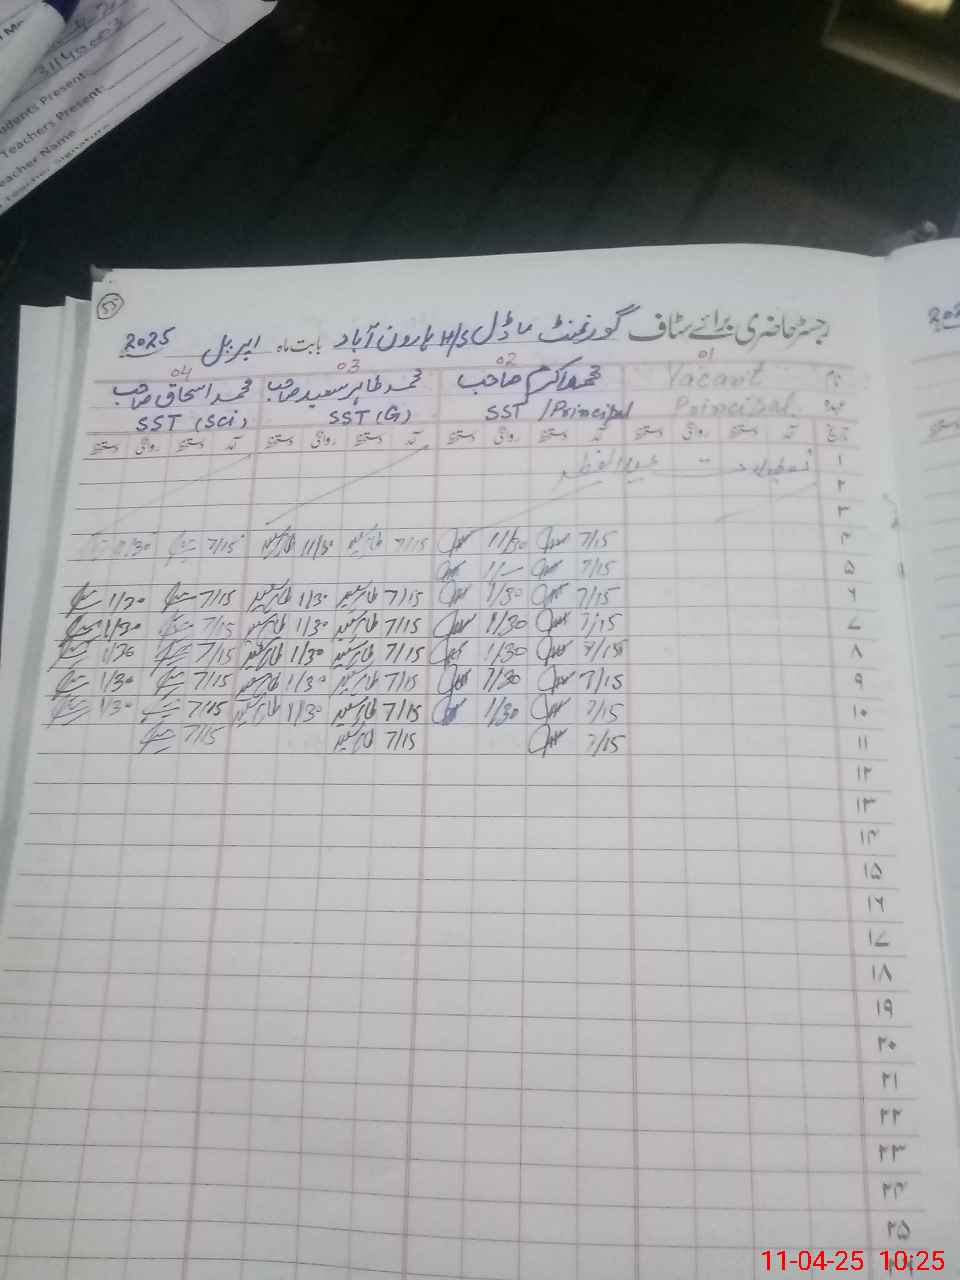 31140003
Students Present:
Teachers Present:
Teacher Name
Teacher Signature
55
رجسٹر حاضری برائے سٹاف گورنمنٹ ماڈل H/S ہارون آباد بابت ماہ اپریل 2025
01 02 03 04
Vacant محمد اکرم صاحب محمد طاہر سعید صاحب محمد اسحاق صاحب
Principal SST / Principal SST (G) SST (Sci)
تاریخ آمد دستخط روانگی دستخط آمد دستخط روانگی دستخط آمد دستخط روانگی دستخط آمد دستخط روانگی دستخط
۱ تعطیلات - عید الفطر
۲
۳
۴ 7/15 11/30 7/15 طاہر سعید 11/30 طاہر سعید 7/15 11/30
۵ 7/15
۶ 7/15 1/30 7/15 طاہر سعید 1/30 طاہر سعید 7/15 1/30
۷ 7/15 1/30 7/15 طاہر سعید 1/30 طاہر سعید 7/15 1/30
۸ 7/15 1/30 7/15 طاہر سعید 1/30 طاہر سعید 7/15 1/30
۹ 7/15 1/30 7/15 طاہر سعید 1/30 طاہر سعید 7/15 1/30
۱۰ 7/15 1/30 7/15 طاہر سعید 1/30 طاہر سعید 7/15 1/30
۱۱ 7/15 7/15 طاہر سعید 7/15
۱۲
۱۳
۱۴
۱۵
۱۶
۱۷
۱۸
۱۹
۲۰
۲۱
۲۲
۲۳
۲۴
۲۵
11-04-25 10:25